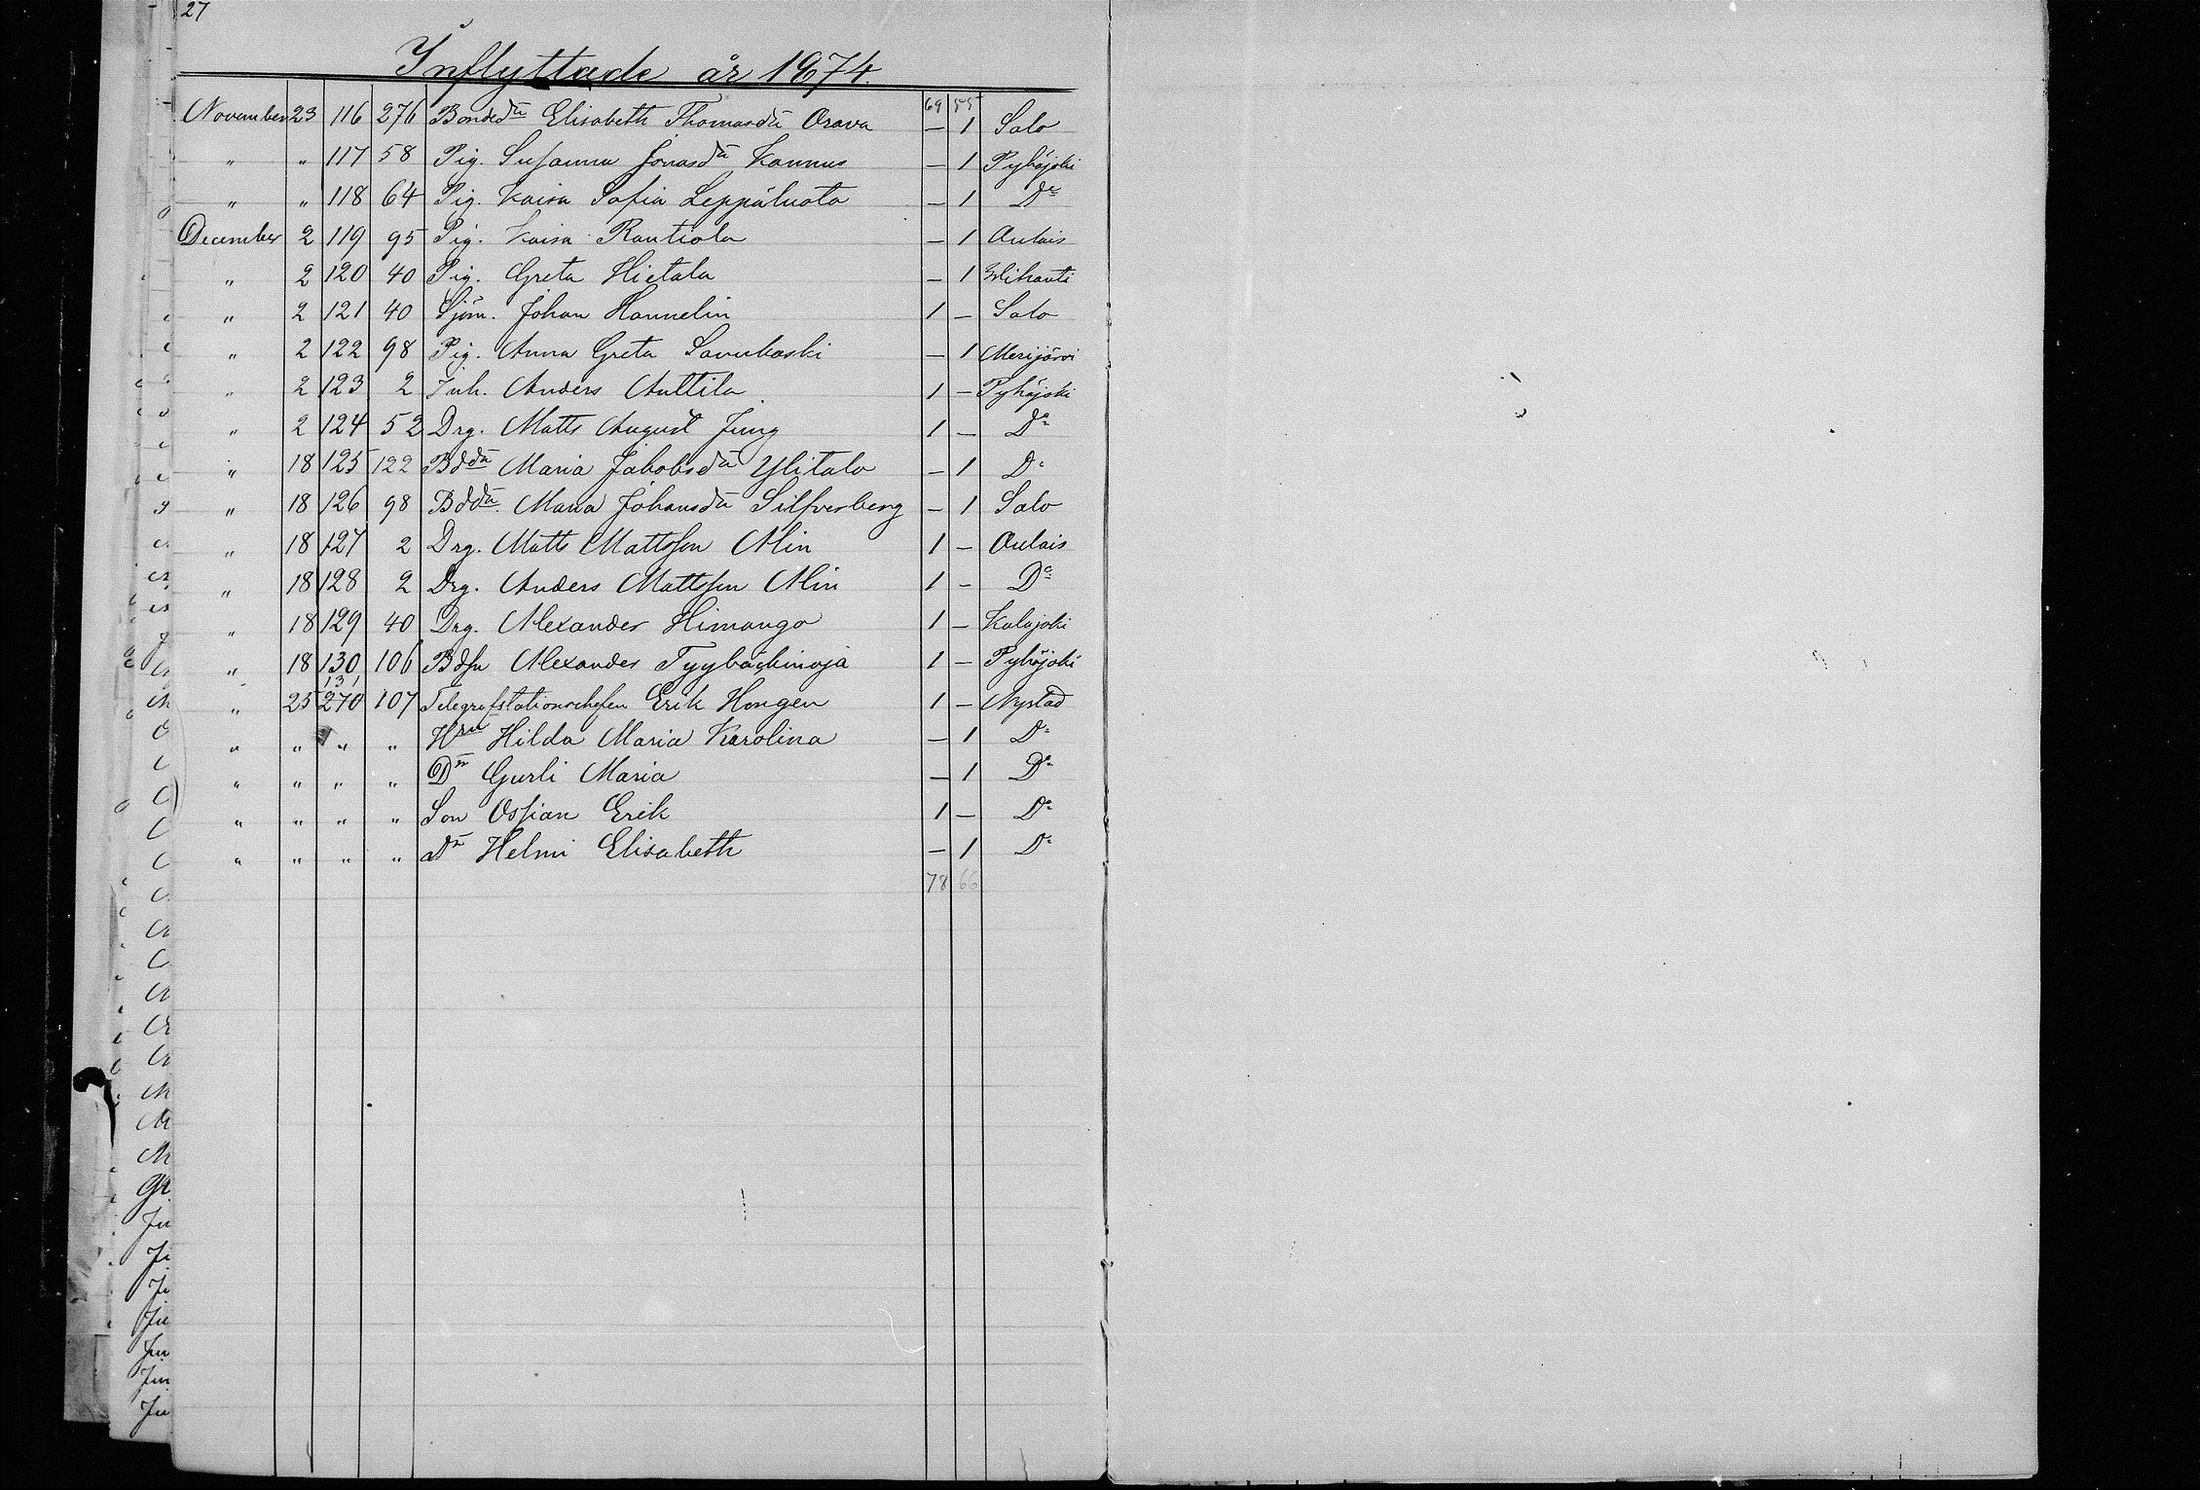 27
Inflyttade år 1874.
69 55
November 23 116 276 Bondedtr Elisabeth Thomasdtr Orava — 1 Salo
" " 117 58 Pig. Susanna Jonasdtr Kannus — 1 Pyhäjoki
" " 118 64 Pig. Kaisa Sofia Leppäluoto — 1 Do
December 2 119 95 Pig. Kaisa Rautiola — 1 Oulais
" 2 120 40 Pig. Greta Hietala — 1 Wihanti
" 2 121 40 Sjöm. Johan Hannelin 1 — Salo
" 2 122 98 Pig. Anna Greta Savukoski — 1 Merijärvi
" 2 123 2 Inh. Anders Anttila 1 — Pyhäjoki
" 2 124 52 Drg. Matts August Jung 1 — Do
" 18 125 122 Bddtr Maria Jakobsdtr Ylitalo — 1 Do
" 18 126 98 Bddtr Maria Johansdtr Silfverberg — 1 Salo
" 18 127 2 Drg. Matts Mattsson Alin 1 — Oulais
" 18 128 2 Drg. Anders Mattsson Alin 1 — Do
" 18 129 40 Drg. Alexander Himango 1 — Kalajoki
" 18 130 106 Bdsn Alexander Tyybäckinoja 1 — Pyhäjoki
131
" 25 270 107 Telegrafstationschefen Erik Hongen 1 — Nystad
" " " " Hru Hilda Maria Karolina — 1 Do
" " " " Dr Gurli Maria — 1 Do
" " " " Son Ossian Erik 1 — Do
" " " " Dr Helmi Elisabeth — 1 Do
78 66